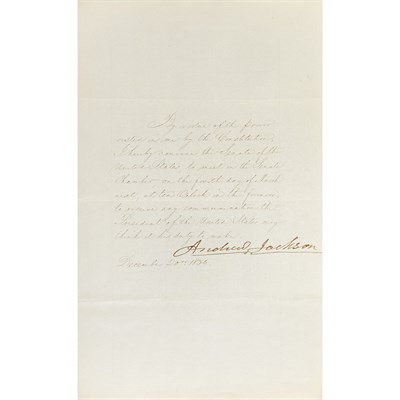 By virtue of the power
vested in me by the Constitution,
I hereby convene the Senate of the
United States to meet in the Senate
Chamber on the fourth day of March
next at ten Oclock in the
to receive any communication the
President of the United States may
think it his duty to make.
Andrew Jackson
December 20th